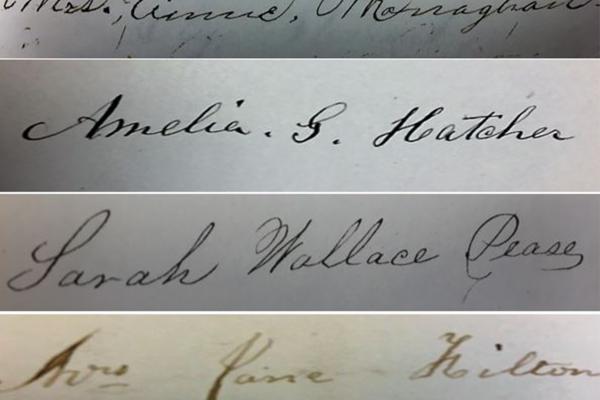 Mrs. Annie, Monaghan
Amelia. G. Hatcher
Sarah Wallace Pease
Mrs Jane Hilton